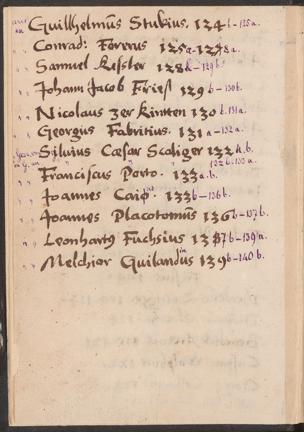 Guilhelmūs Stukius. 124b-125a.
Conrad: Forerus 125a-128a.
Samuel Kessler 128b-129b
Johann Jacob Frieß 129b-130b.
Nicolaus Zer kintten 130b.131a.
Georgius Fabritius. 131a-132a.
Silvius Cæsar Scaliger 132a.b.
132b.133a.
Franciscus Porto. 133a.b.
Joannes Caig. 133b-136b.
Joannes Placotomūs 136b-137b.
Leonhartg Fuchsius 137b-139a.
Melchior Guilandus 139b-140b.